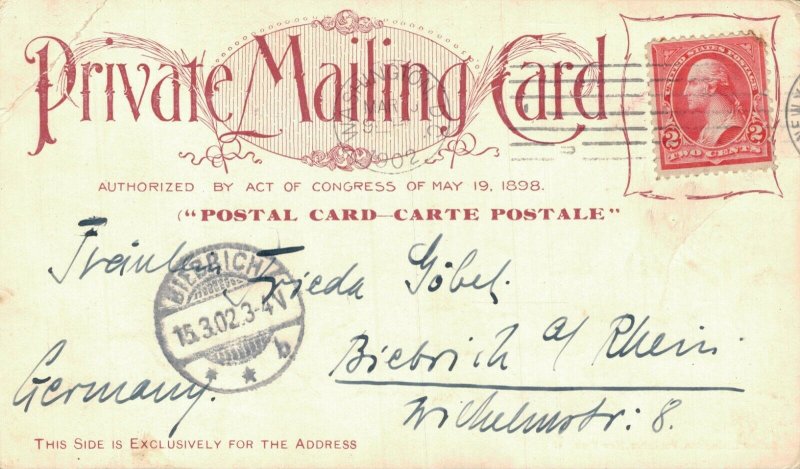 Private Mailing Card
WASHINGTON, D.C.
MAR
1902
UNITED STATES POSTAGE
2 2
TWO CENTS
NEW Y
AUTHORIZED BY ACT OF CONGRESS OF MAY 19, 1898.
("POSTAL CARD—CARTE POSTALE"
Fräulein Frieda Göbel.
BIEBRICH
15.3.02.3-4V
* * b
Biebrich a/ Rhein
Germany.
Wilhelmstr: 8.
THIS SIDE IS EXCLUSIVELY FOR THE ADDRESS